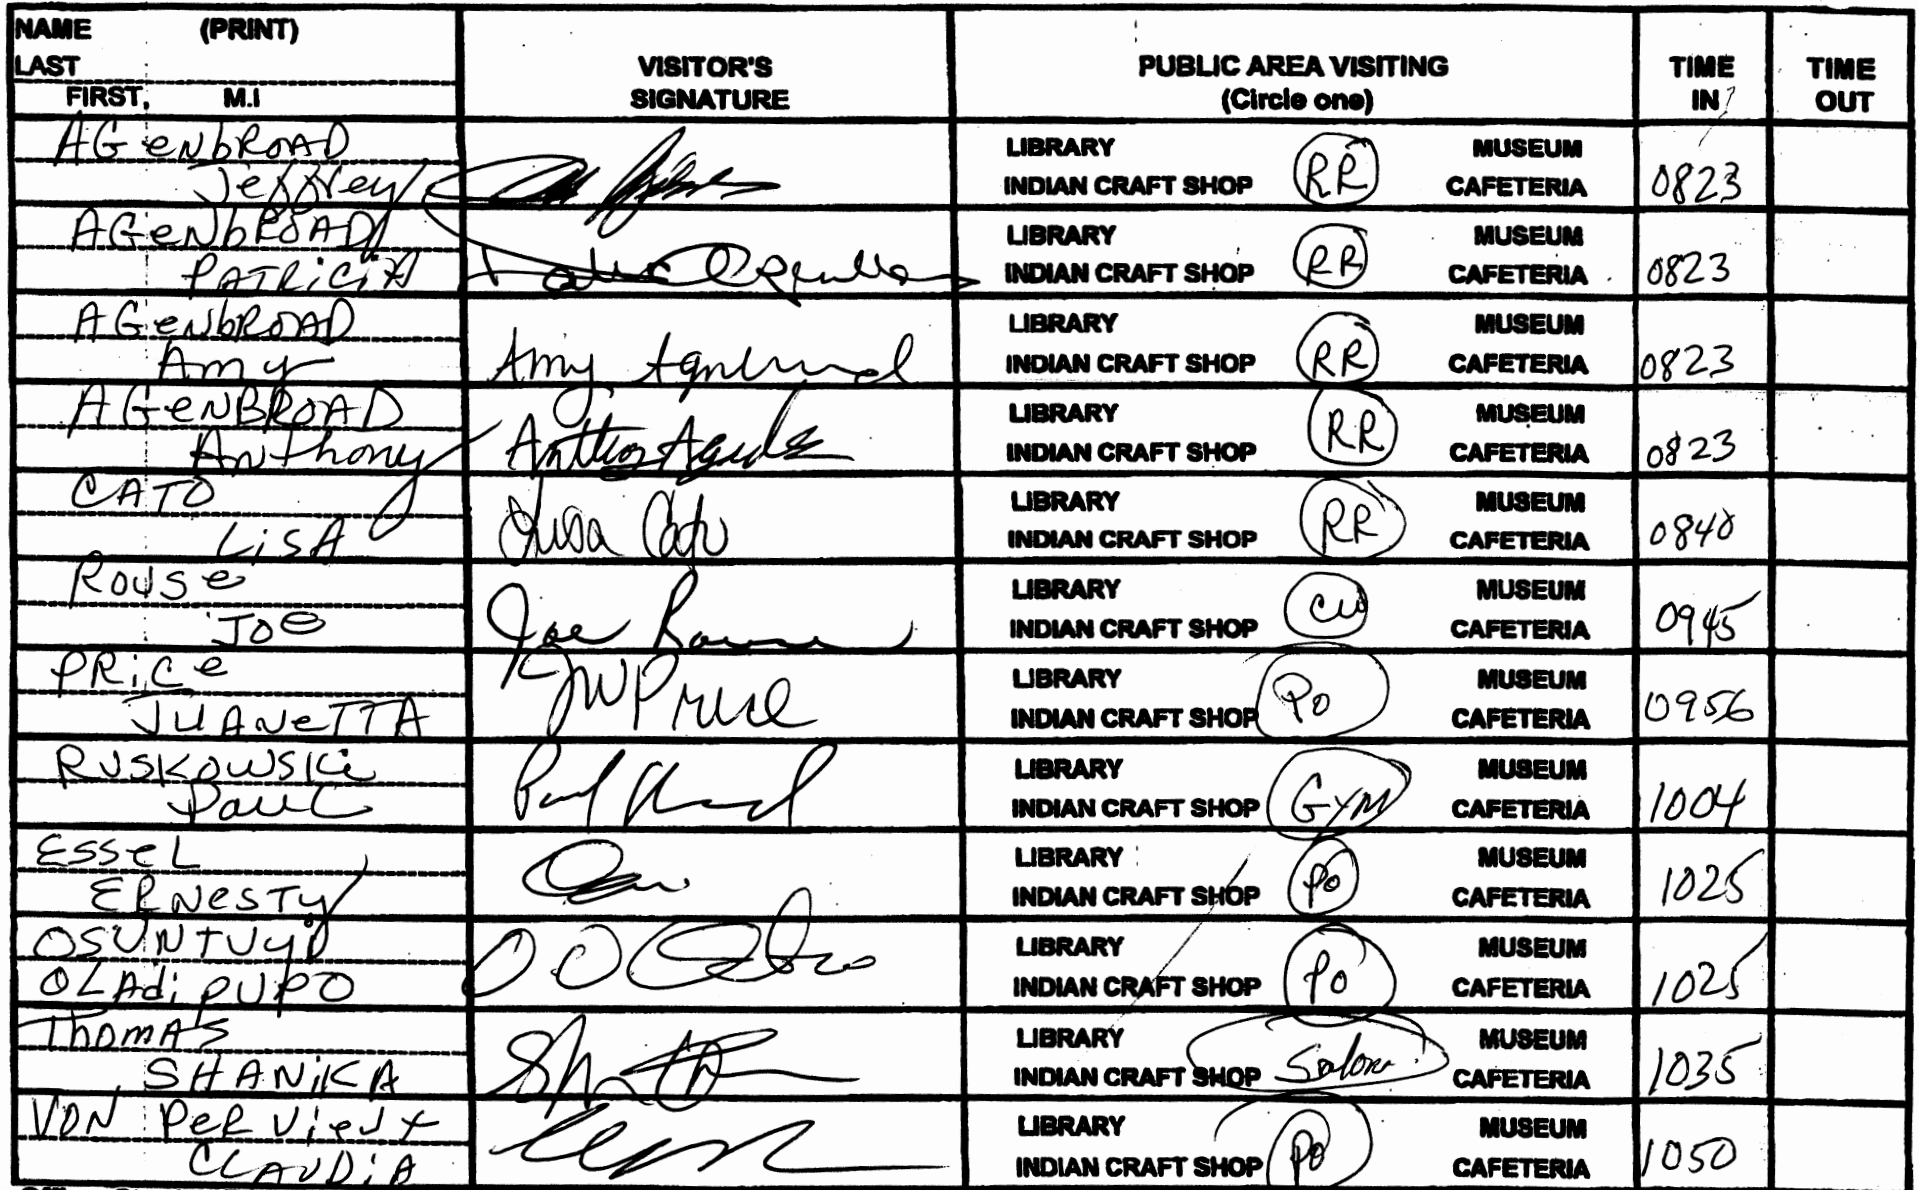 NAME (PRINT)
LAST
FIRST, M.I
VISITOR'S
SIGNATURE
PUBLIC AREA VISITING
(Circle one)
TIME
IN
TIME
OUT
AGenbROAD
Jeffrey
LIBRARY RR MUSEUM
INDIAN CRAFT SHOP CAFETERIA
0823
AGeNbROAD
PATRiCiA
LIBRARY RR MUSEUM
INDIAN CRAFT SHOP CAFETERIA
0823
AGeNbROAD
Amy
Amy
LIBRARY RR MUSEUM
INDIAN CRAFT SHOP CAFETERIA
0823
AGeNBROAD
ANthony
LIBRARY RR MUSEUM
INDIAN CRAFT SHOP CAFETERIA
0823
CATO
LiSA
Lisa Cato
LIBRARY RR MUSEUM
INDIAN CRAFT SHOP CAFETERIA
0840
ROUSe
JOe
Joe Rouse
LIBRARY MUSEUM
INDIAN CRAFT SHOP CAFETERIA
0945
PRiCe
JUANeTTA
JWPrice
LIBRARY PO MUSEUM
INDIAN CRAFT SHOP CAFETERIA
0956
RUSKOWSKi
PauL
Paul
LIBRARY GYM MUSEUM
INDIAN CRAFT SHOP CAFETERIA
1004
ESSeL
ERNeSTy
LIBRARY PO MUSEUM
INDIAN CRAFT SHOP CAFETERIA
1025
OSUNTUyi
OLAdipUPO
LIBRARY PO MUSEUM
INDIAN CRAFT SHOP CAFETERIA
1025
ThomAS
SHANiKA
LIBRARY MUSEUM
INDIAN CRAFT SHOP Salon CAFETERIA
1035
VON
CLAUDiA
LIBRARY PO MUSEUM
INDIAN CRAFT SHOP CAFETERIA
1050